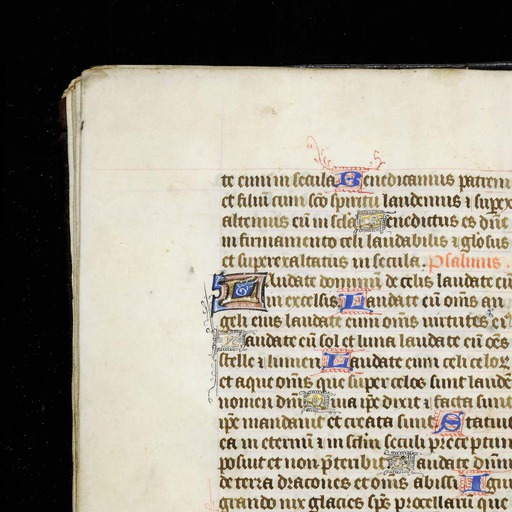 te eum in secula Benedicamus patrem
et filiu cum sco spiritu laudemus ⁊ super
altemus eu in scla Benedictus es dne
in firmamento celi laudabilis ⁊ gl'osus
et superexaltatus in secula. Psalmus.
Laudate dominu de celis laudate eu
in excelsis Laudate eu oms an
geli eius laudate eum oms uirtutes ei'
Laudate eu sol et luna laudate eu oes
stelle ⁊ lumen Laudate eum celi celor
et aque oms que super celos sunt laude
nomen dni Quia ipe dixit ⁊ facta sunt
ipe mandauit et creata sunt Statuit
ea in eternu ⁊ in sclm seculi preceptum
posuit et non pteribit Laudate dnm
de terra dracones et oms abissi Igni
grando nix glacies sps procellaru que